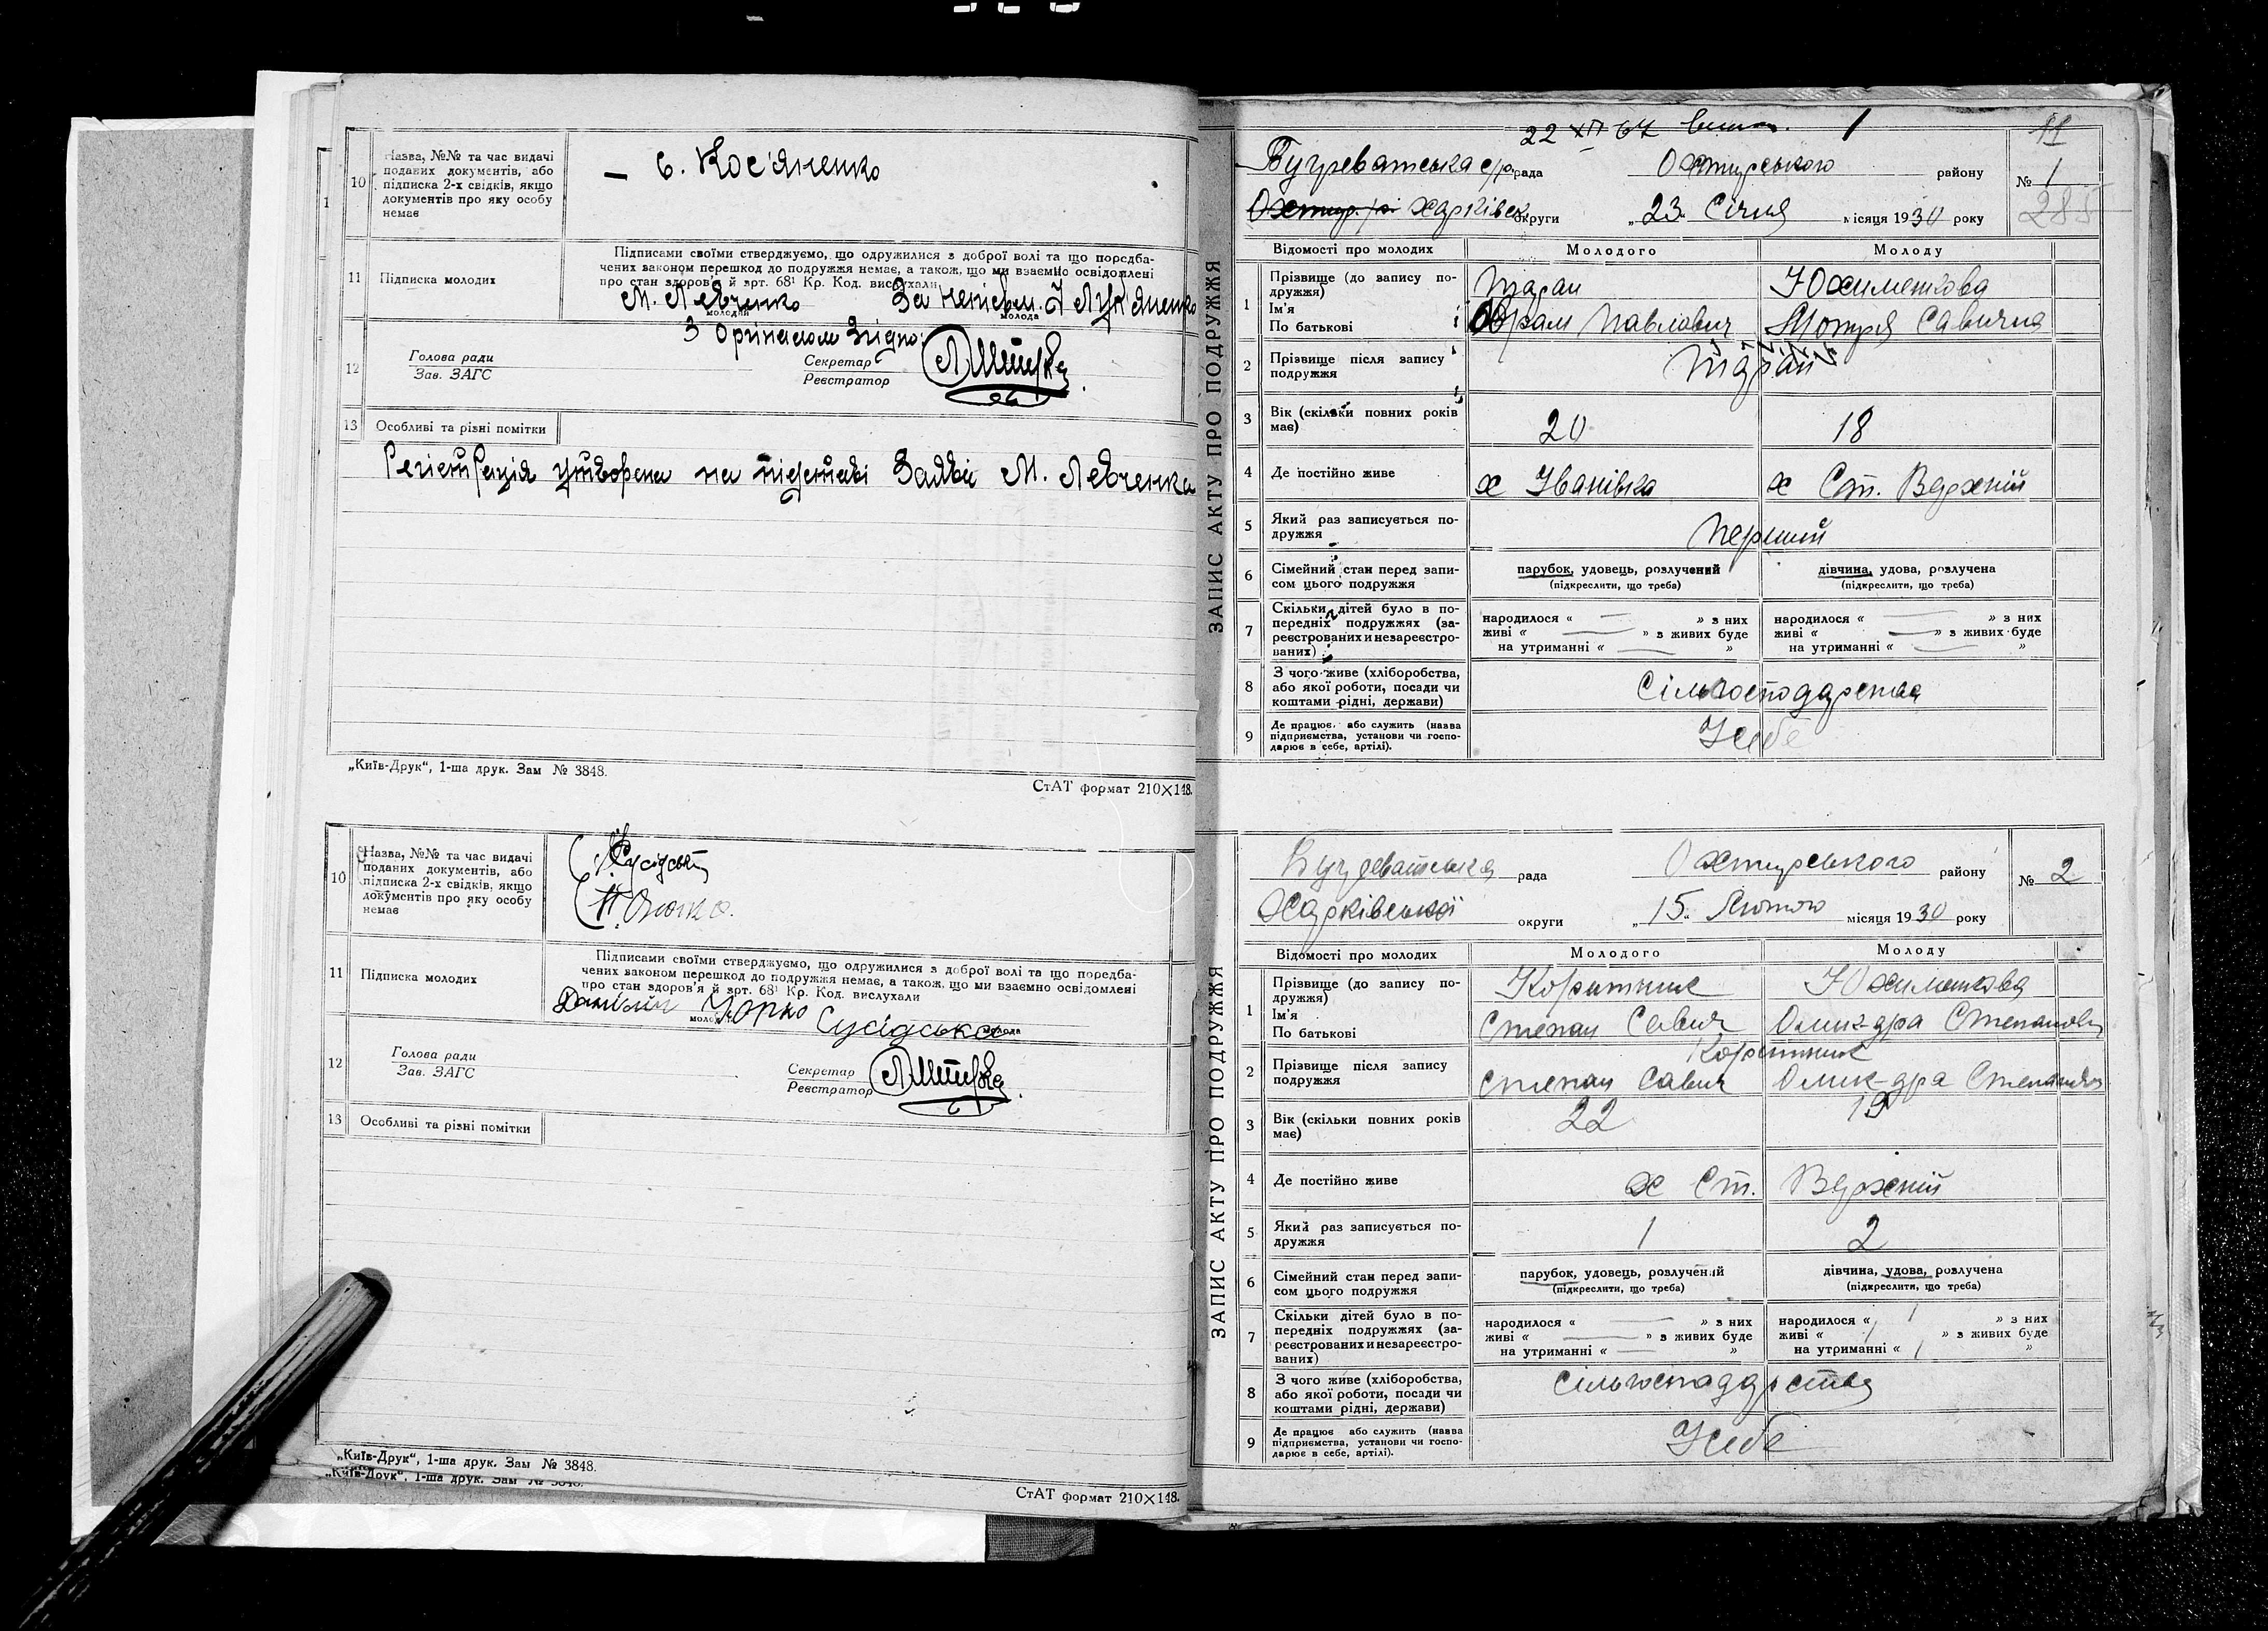 10
Назва, №№ та час видачі
поданих документів, або
підписка 2-х свідків, якщо
документів про яку особу
немає
— Є. Кос'яненко
11
Підписка молодих
Підписами своїми стверджуємо, що одружилися з доброї волі та що передба-
чених законом перешкод до подружжя немає, а також, що ми взаємно освідомлені
про стан здоров'я й арт. 68¹ Кр. Код. вислухали
М. Левченко За неписьм. Лук'яненко
молодий молода
З оригіналом згідно:
12
Голова ради
Зав. ЗАГС
Секретар
Реєстратор
13
Особливі та різні помітки
Регістрація утворена на підставі Заяви М. Левченка
„Київ-Друк“, 1-ша друк. Зам № 3848.
СтАТ формат 210×148.
10
Назва, №№ та час видачі
поданих документів, або
підписка 2-х свідків, якщо
документів про яку особу
немає
11
Підписка молодих
Підписами своїми стверджуємо, що одружилися з доброї волі та що передба-
чених законом перешкод до подружжя немає, а також, що ми взаємно освідомлені
про стан здоров'я й арт. 68¹ Кр. Код. вислухали
Юрко Сусідська
молода
12
Голова ради
Зав. ЗАГС
Секретар
Реєстратор
13
Особливі та різні помітки
„Київ-Друк“, 1-ша друк. Зам № 3848.
„Київ-Друк“, 1-ша друк. Зам № 3848.
СтАТ формат 210×148.
ЗАПИС АКТУ ПРО ПОДРУЖЖЯ
22 XII 67 1
11
Бугреватська с/р. рада Охтирського району № 1
Харківськ округи „23“ Січня місяця 1930 року
285
Відомості про молодих Молодого Молоду
1
Прізвище (до запису по-
дружжя)
Ім'я
По батькові
Таран Юхименкова
Оврам Павлович Мотря Савична
2
Прізвище після запису
подружжя
Таран
3
Вік (скільки повних років
має)
20 18
4
Де постійно живе
х Іванівка х Ст. Верхній
5
Який раз записується по-
дружжя
Перший
6
Сімейний стан перед запи-
сом цього подружжя
парубок, удовець, розлучений дівчина, удова, розлучена
(підкреслити, що треба) (підкреслити, що треба)
7
Скільки дітей було в по-
передніх подружжях (за-
реєстрованих и незареєстро-
ваних)
народилося « — » з них народилося « — » з них
живі « — » з живих буде живі « — » з живих буде
на утриманні « — » на утриманні « — »
8
З чого живе (хліборобства,
або якої роботи, посади чи
коштами рідні, держави)
Сільгосподарства
9
Де працює або служить (назва
підприємства, установи чи госпо-
дарює в себе, артілі).
У себе
ЗАПИС АКТУ ПРО ПОДРУЖЖЯ
Бугреватська рада Охтирського району № 2
Харківської округи „15“ Лютого місяця 1930 року
Відомості про молодих Молодого Молоду
1
Прізвище (до запису по-
дружжя)
Ім'я
По батькові
Коритник Юхименкова
Степан Савич Олик-дра Степановн
2
Прізвище після запису
подружжя
Коритник
Степан Савич Олик-дра Степановн
3
Вік (скільки повних років
має)
22 19
4
Де постійно живе
х Ст. Верхній
5
Який раз записується по-
дружжя
1 2
6
Сімейний стан перед запи-
сом цього подружжя
парубок, удовець, розлучений дівчина, удова, розлучена
(підкреслити, що треба) (підкреслити, що треба)
7
Скільки дітей було в по-
передніх подружжях (за-
реєстрованих и незареєстро-
ваних)
народилося « — » з них народилося « 1 » з них
живі « — » з живих буде живі « 1 » з живих буде
на утриманні « — » на утриманні « 1 »
8
З чого живе (хліборобства,
або якої роботи, посади чи
коштами рідні, держави)
Сільгоспадарства
9
Де працює або служить (назва
підприємства, установи чи госпо-
дарює в себе, артілі).
У себе